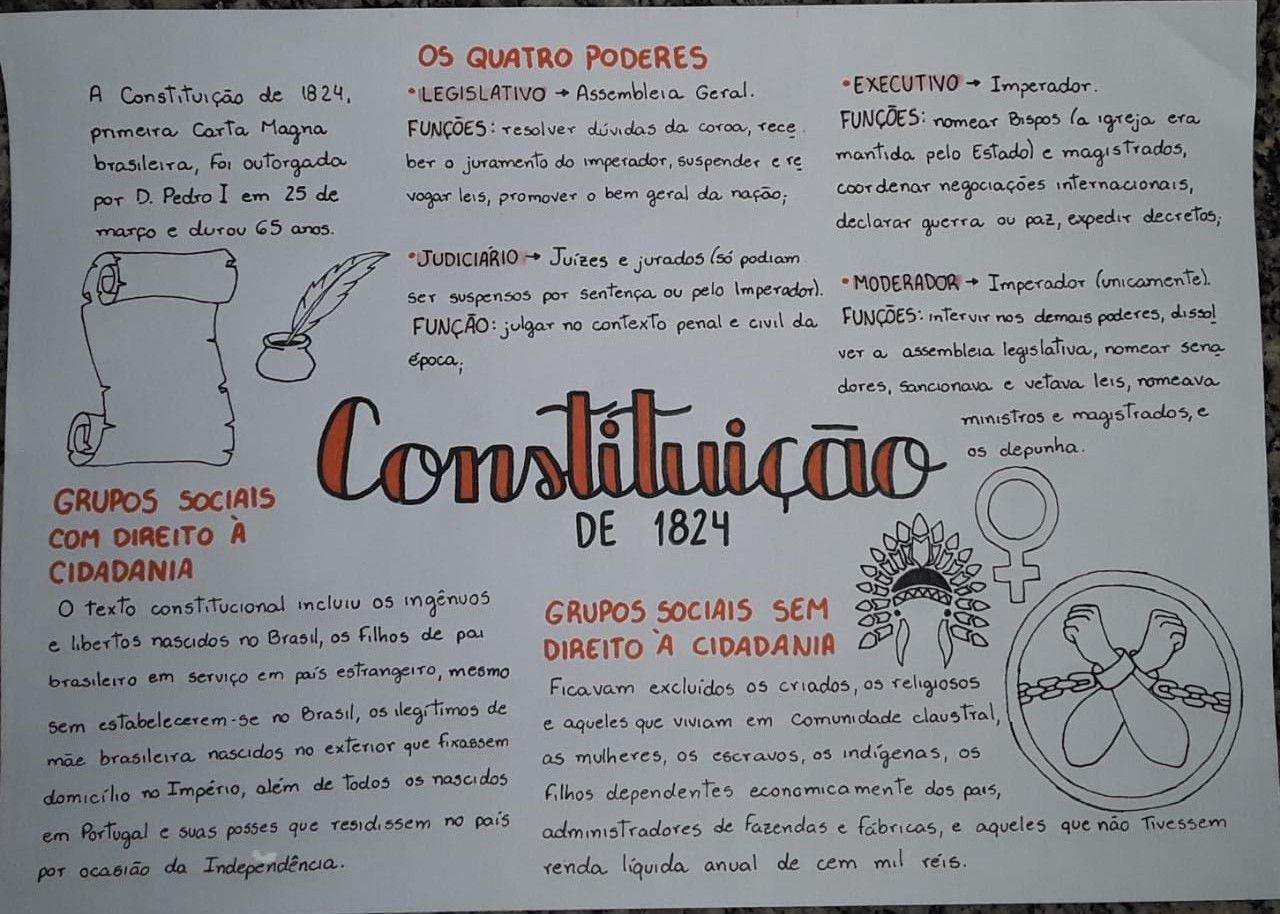 A Constituição de 1824,
primeira Carta Magna
brasileira, foi outorgada
por D. Pedro I em 25 de
março e durou 65 anos.
OS QUATRO PODERES
•LEGISLATIVO → Assembleia Geral.
FUNÇÕES: resolver dúvidas da coroa, rece
ber o juramento do imperador, suspender e re
vogar leis, promover o bem geral da nação;
•JUDICIÁRIO → Juízes e jurados (só podiam
ser suspensos por sentença ou pelo Imperador).
FUNÇÃO: julgar no contexto penal e civil da
época;
•EXECUTIVO → Imperador.
FUNÇÕES: nomear Bispos (a igreja era
mantida pelo Estado) e magistrados,
coordenar negociações internacionais,
declarar guerra ou paz, expedir decretos;
•MODERADOR → Imperador (unicamente).
FUNÇÕES: intervir nos demais poderes, dissol
ver a assembleia legislativa, nomear sena
dores, sancionava e vetava leis, nomeava
ministros e magistrados, e
os depunha.
Constituição
DE 1824
GRUPOS SOCIAIS
COM DIREITO À
CIDADANIA
O texto constitucional incluiu os ingênuos
e libertos nascidos no Brasil, os filhos de pai
brasileiro em serviço em país estrangeiro, mesmo
sem estabelecerem-se no Brasil, os ilegítimos de
mãe brasileira nascidos no exterior que fixassem
domicílio no Império, além de todos os nascidos
em Portugal e suas posses que residissem no país
por ocasião da Independência.
GRUPOS SOCIAIS SEM
DIREITO À CIDADANIA
Ficavam excluídos os criados, os religiosos
e aqueles que viviam em comunidade claustral,
as mulheres, os escravos, os indígenas, os
filhos dependentes economicamente dos pais,
administradores de fazendas e fábricas, e aqueles que não tivessem
renda líquida anual de cem mil réis.